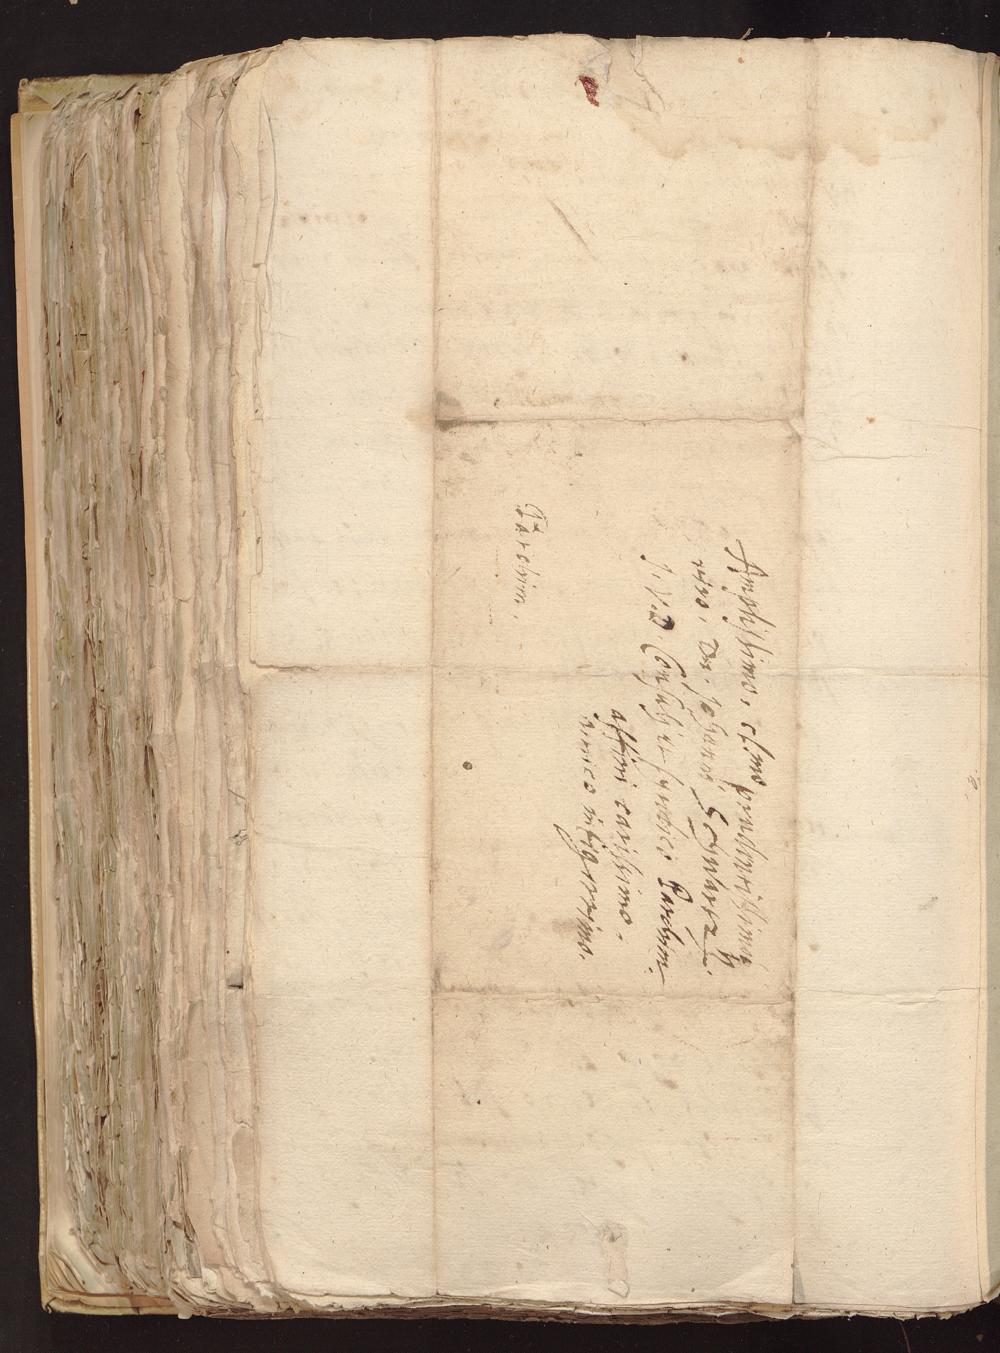 Amplissimo, clmo prudentissimoq
viro, Dn. Johanni Schwartz
J.V.D Consuli et syndico Parchim.
affini carissimo.
amico integerrimo.
Parchim.